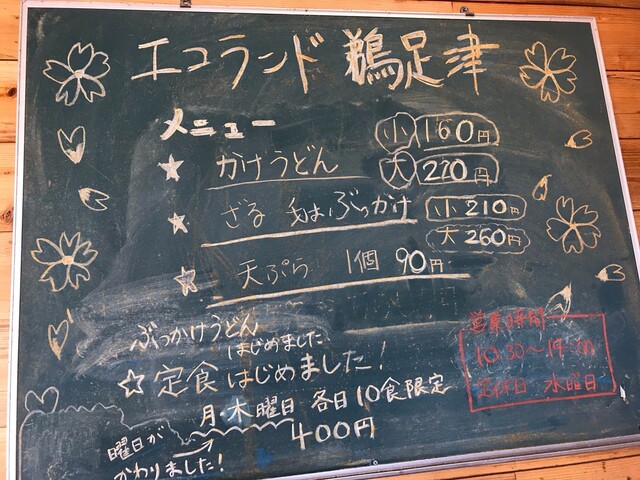 エコランド 鵜足津
メニュー
★ かけうどん 小 160円
大 210円
★ ざる ぶっかけ 小 210円
大 260円
★ 天ぷら 1個 90円
ぶっかけうどん
はじめました
☆ 定食はじめました!
月・木曜日 各日10食限定
400円
曜日が
かわりました!
営業時間
10:30～
定休日 水曜日